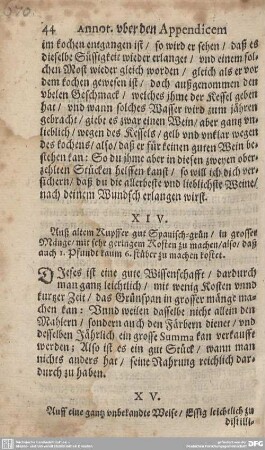 44 Annot. vber den Appendicem
im kochen entgangen ist / so wird er sehen / daß es
dieselbe Süssigkeit wieder erlanget / vnd einem sol-
chen Most wieder gleich worden / gleich als er vor
dem kochen gewesen ist / doch außgenommen den
vbelen Geschmack / welches ihme der Kessel geben
hat / vnd wann solches Wasser wird zum jähren
gebracht / giebt es zwar einen Wein / aber gantz vn-
lieblich / wegen des Kessels / gelb vnd vnklar wegen
des kochens / also / daß er für keinen guten Wein be-
stehen kan: So du ihme aber in diesen zweyen ober-
zehlten Stücken helffen kanst / so will ich dich ver-
sichern / daß du die allerbeste vnd lieblichste Weine /
nach deinem Wundsch erlangen wirst.
XIV.
Auß altem Kupffer gut Spanisch-grün / in grosser
Mänge / mit sehr geringem Kosten zu machen / also / daß
auch 1. Pfundt kaum 6. stüber zu machen kostet.
DJeses ist eine gute Wissenschafft / dardurch
man gantz leichtlich / mit wenig Kosten vnnd
kurger Zeit / das Grünspan in grosser mänge ma-
chen kan: Vnnd weilen dasselbe nicht allein den
Mahlern / sondern auch den Färbern diener / vnd
desselben Jährlich ein grosse Summa kan verkaufft
werden; Also ist es ein gut Stück / wann man
nichts anders hat / seine Nahrung reichlich dar-
durch zu haben.
XV.
Auff eine gantz vnbekandte Weise / Essig leichtlich zu
distilli-